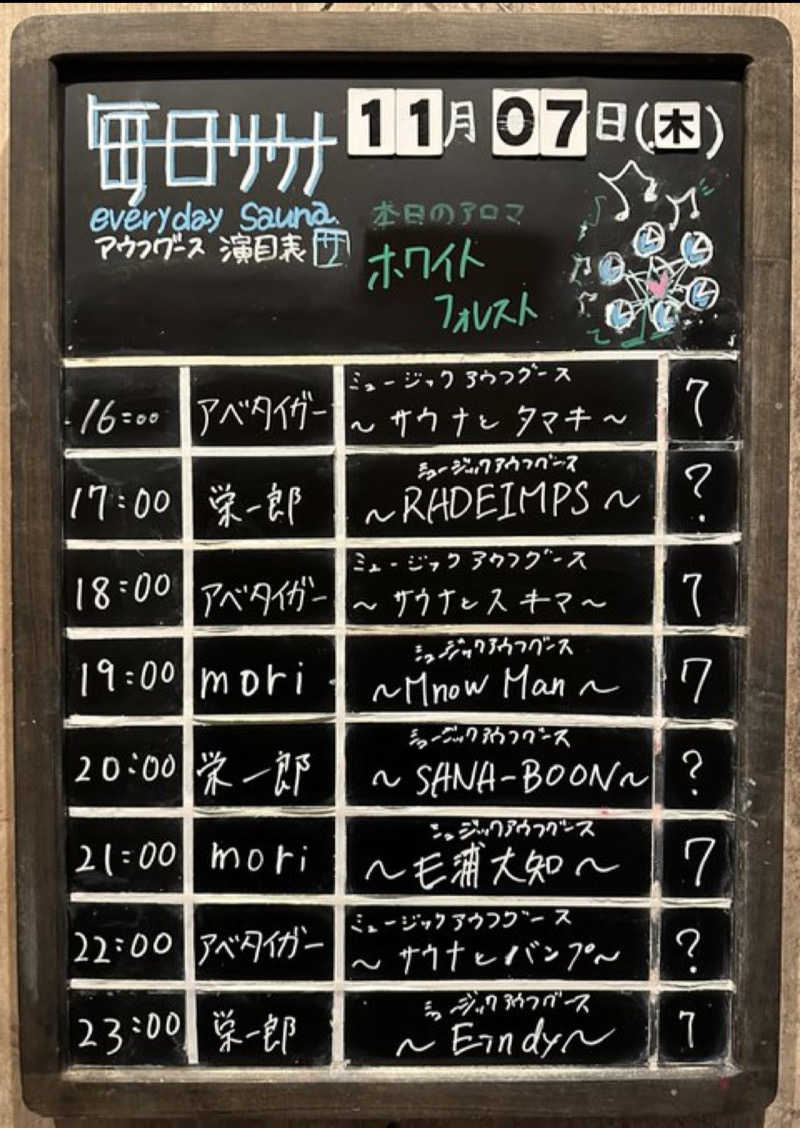 毎日サウナ
11月07日(木)
everyday Sauna
アウフグース 演目表 サ
本日のアロマ
ホワイト
フォレスト
16:00 アベタイガー ミュージックアウフグース ～サウナとタマキ～ 7
17:00 栄一郎 ミュージックアウフグース ～RADEIMPS～ ?
18:00 アベタイガー ミュージックアウフグース ～サウナとスキマ～ 7
19:00 mori ミュージックアウフグース ～Mnow Man～ 7
20:00 栄一郎 ミュージックアウフグース ～SANA-BOON～ ?
21:00 mori ミュージックアウフグース ～毛浦大知～ 7
22:00 アベタイガー ミュージックアウフグース ～サウナとバンプ～ ?
23:00 栄一郎 ミュージックアウフグース 7